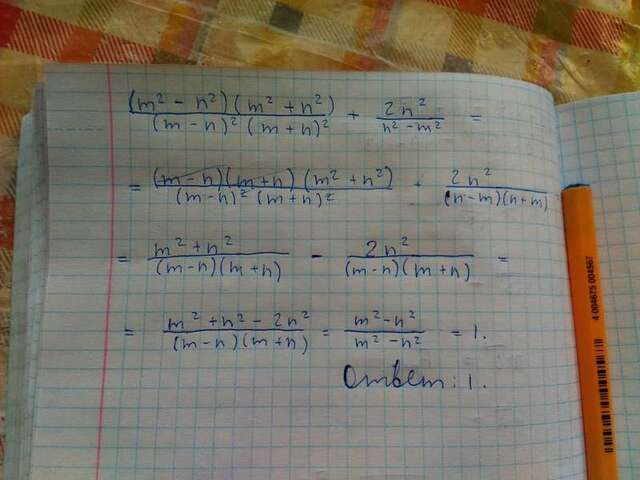 (m² - n²)(m² + n²) / (m - n)² (m + n)² + 2n² / n² - m² =
= (m - n)(m + n)(m² + n²) / (m - n)² (m + n)² + 2n² / (n - m)(n + m)
= m² + n² / (m - n)(m + n) - 2n² / (m - n)(m + n) =
= m² + n² - 2n² / (m - n)(m + n) = m² - n² / m² - n² = 1.
Ответ: 1.
4 004675 004567